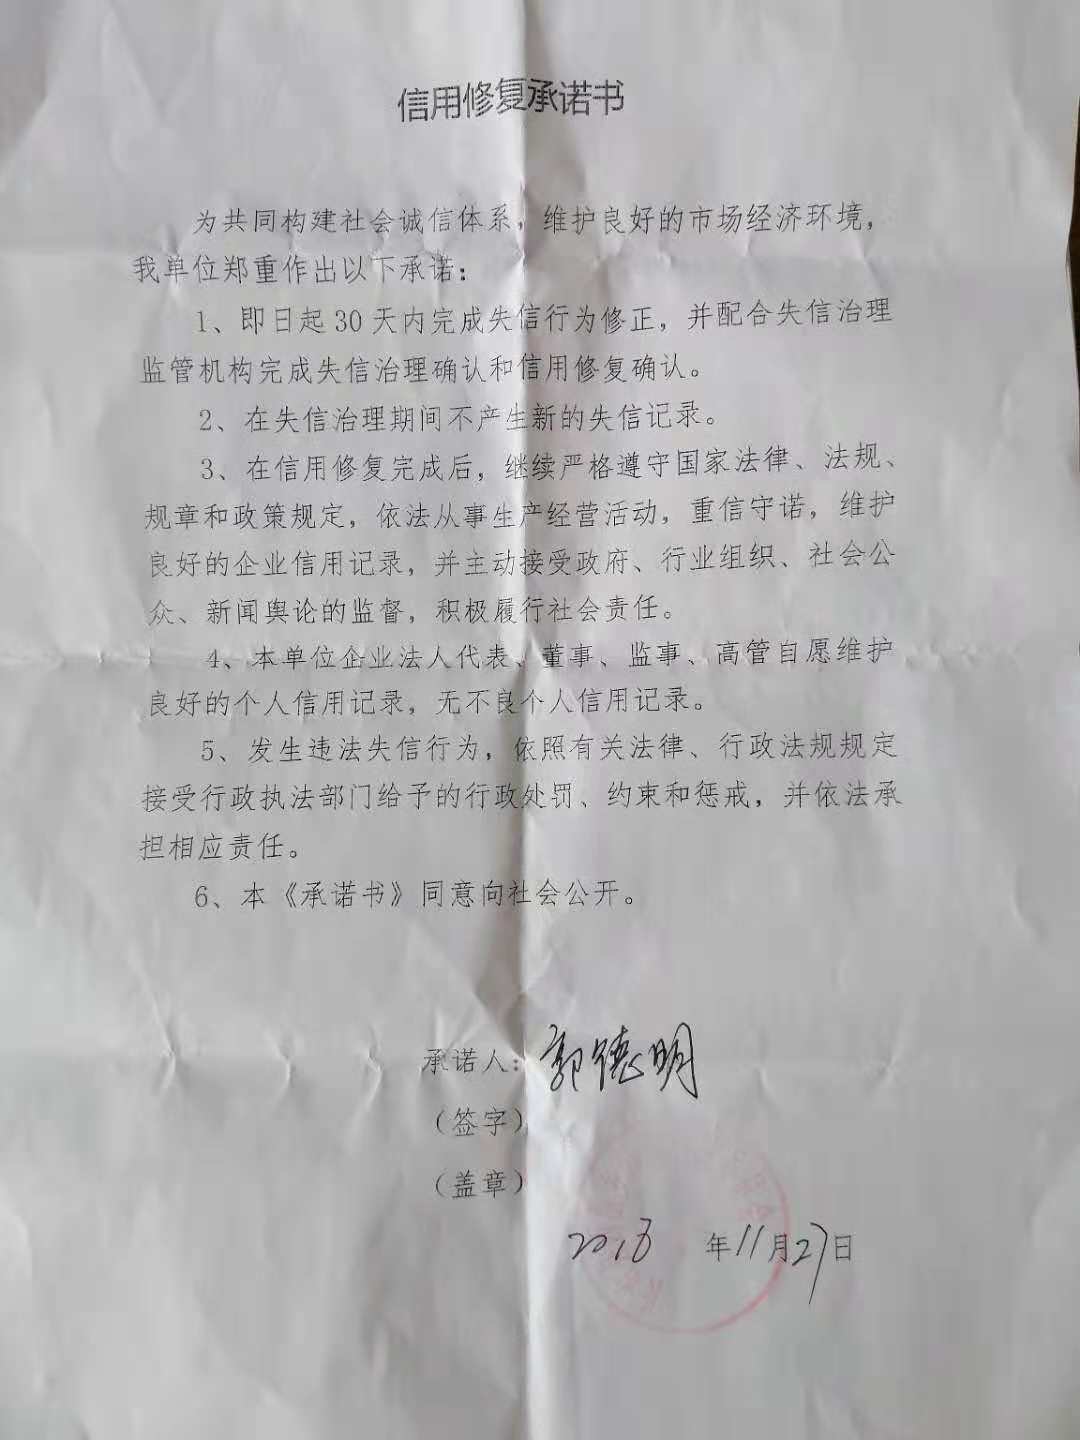 信用修复承诺书
为共同构建社会诚信体系，维护良好的市场经济环境，
我单位郑重作出以下承诺：
1、即日起30天内完成失信行为修正，并配合失信治理
监管机构完成失信治理确认和信用修复确认。
2、在失信治理期间不产生新的失信记录。
3、在信用修复完成后，继续严格遵守国家法律、法规、
规章和政策规定，依法从事生产经营活动，重信守诺，维护
良好的企业信用记录，并主动接受政府、行业组织、社会公
众、新闻舆论的监督，积极履行社会责任。
4、本单位企业法人代表、董事、监事、高管自愿维护
良好的个人信用记录，无不良个人信用记录。
5、发生违法失信行为，依照有关法律、行政法规规定
接受行政执法部门给予的行政处罚、约束和惩戒，并依法承
担相应责任。
6、本《承诺书》同意向社会公开。
承诺人：郭德明
（签字）
（盖章）
年11月27日